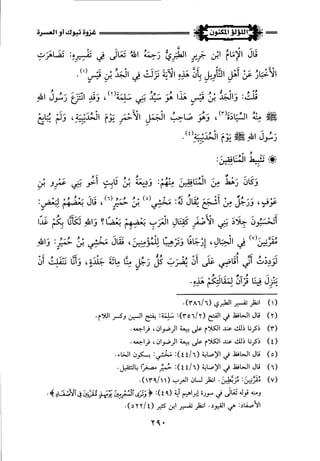 اللؤلؤ المكنون
غزوة تبوك أو العسرة
قَالَ الإِمَامُ ابْنُ جَرِيرٍ الطَّبَرِيُّ رَحِمَهُ اللهُ تَعَالَى فِي تَفْسِيرِهِ: تَظَاهَرَتِ
الْأَخْبَارُ عَنْ أَهْلِ التَّأْوِيلِ بِأَنَّ هَذِهِ الْآيَةَ نَزَلَتْ فِي الْجَدِّ بْنِ قَيْسٍ(١).
قُلْتُ: وَالْجَدُّ بْنُ قَيْسٍ هَذَا هُوَ سَيِّدُ بَنِي سَلِمَةَ(٢)، وَقَدِ انْتَزَعَ رَسُولُ اللهِ
ﷺ مِنْهُ السِّيَادَةَ(٣)، وَهُوَ صَاحِبُ الْجَمَلِ الْأَحْمَرِ يَوْمَ الْحُدَيْبِيَةِ، وَلَمْ يُبَايِعْ
رَسُولَ اللهِ ﷺ يَوْمَ الْحُدَيْبِيَةِ(٤).
❋ تَثْبِيطُ الْمُنَافِقِينَ:
وَكَانَ رَهْطٌ مِنَ الْمُنَافِقِينَ مِنْهُمْ: وَدِيعَةُ بْنُ ثَابِتٍ أَخُو بَنِي عَمْرِو بْنِ
عَوْفٍ، وَرَجُلٌ مِنْ أَشْجَعَ يُقَالُ لَهُ: مَخْشِيُّ(٥) بْنُ حُمَيِّرٍ(٦)، قَالَ بَعْضُهُمْ لِبَعْضٍ:
أَتَحْسَبُونَ جِلَادَ بَنِي الْأَصْفَرِ كَقِتَالِ الْعَرَبِ بَعْضِهِمْ بَعْضًا؟ وَاللهِ لَكَأَنَّا بِكُمْ غَدًا
مُقَرَّنِينَ(٧) فِي الْحِبَالِ، إِرْجَافًا وَتَرْهِيبًا لِلْمُؤْمِنِينَ، فَقَالَ مَخْشِيُّ بْنُ حُمَيِّرٍ: وَاللهِ
لَوَدِدْتُ أَنِّي أُقَاضَى عَلَى أَنْ يُضْرَبَ كُلُّ رَجُلٍ مِنَّا مِائَةَ جَلْدَةٍ، وَأَنَّا نَنْفَلِتُ أَنْ
يَنْزِلَ فِينَا قُرْآنٌ لِمَقَالَتِكُمْ هَذِهِ.
(١) انظر تفسير الطبري (٣٨٦/٦).
(٢) قال الحافظ في الفتح (٣٥٦/٢): سَلِمة: بفتح السين وكسر اللام.
(٣) ذكرنا ذلك عند الكلام على بيعة الرضوان، فراجعه.
(٤) ذكرنا ذلك عند الكلام على بيعة الرضوان، فراجعه.
(٥) قال الحافظ في الإصابة (٤٤/٦): مَخْشي: بسكون الخاء.
(٦) قال الحافظ في الإصابة (٤٤/٦): حُمَيِّر مصغرًا بالتثقيل.
(٧) مُقَرَّنِينَ: مُرْبَطِينَ. انظر لسان العرب (١٣٩/١١).
ومنه قوله تعالى في سورة إبراهيم آية (٤٩): ﴿ وَتَرَى الْمُجْرِمِينَ يَوْمَئِذٍ مُقَرَّنِينَ فِي الْأَصْفَادِ ﴾.
الأصفاد: هي القيود. انظر تفسير ابن كثير (٥٢٢/٤).
٢٩٠